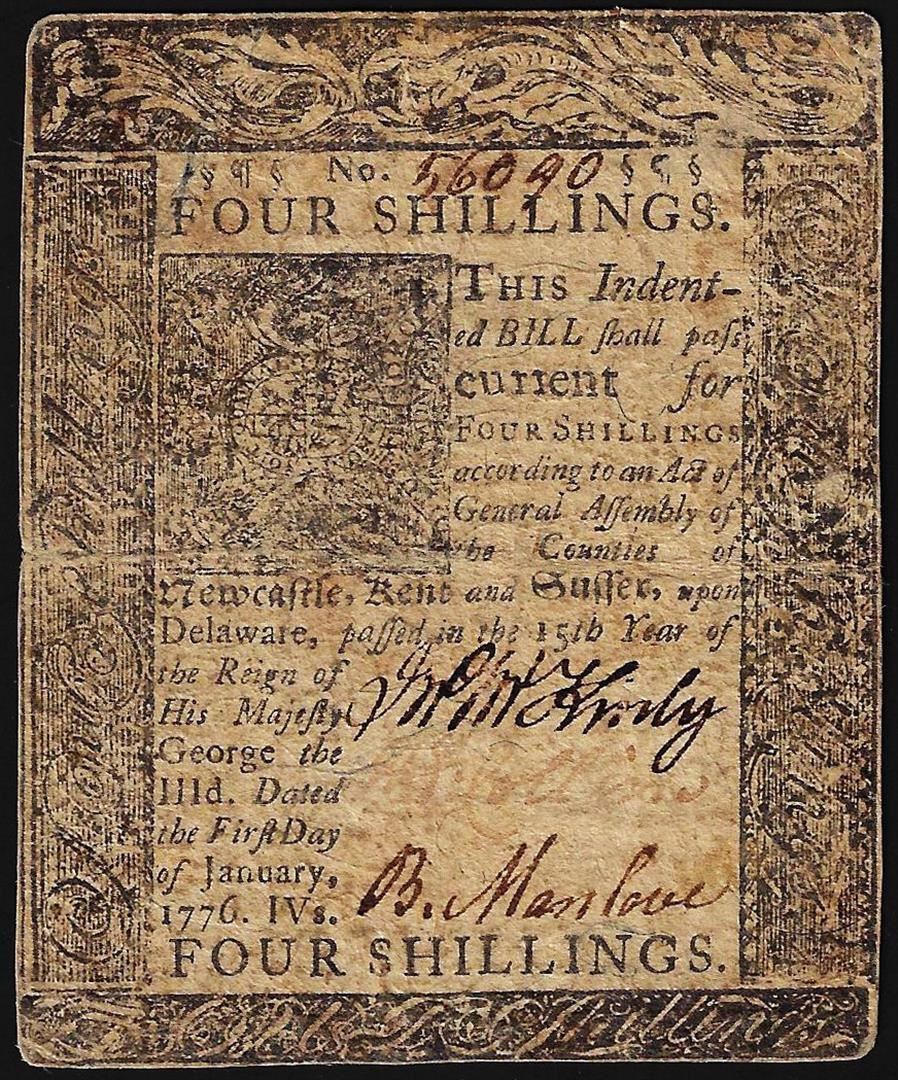 § ¶ § No. 56090 § ¶ §
FOUR SHILLINGS.
THIS Indent-
ed BILL ſhall paſs
current for
FOUR SHILLINGS
according to an Act of
General Aſſembly of
the Counties of
Newcaſtle, Kent and Suſſex, upon
Delaware, paſſed in the 15th Year of
the Reign of
His Majeſty
George the
IIId. Dated
the Firſt Day
of January,
1776. IVs.
Jno McKinly
B. Manlove
FOUR SHILLINGS.
Four Shillings
Shillings